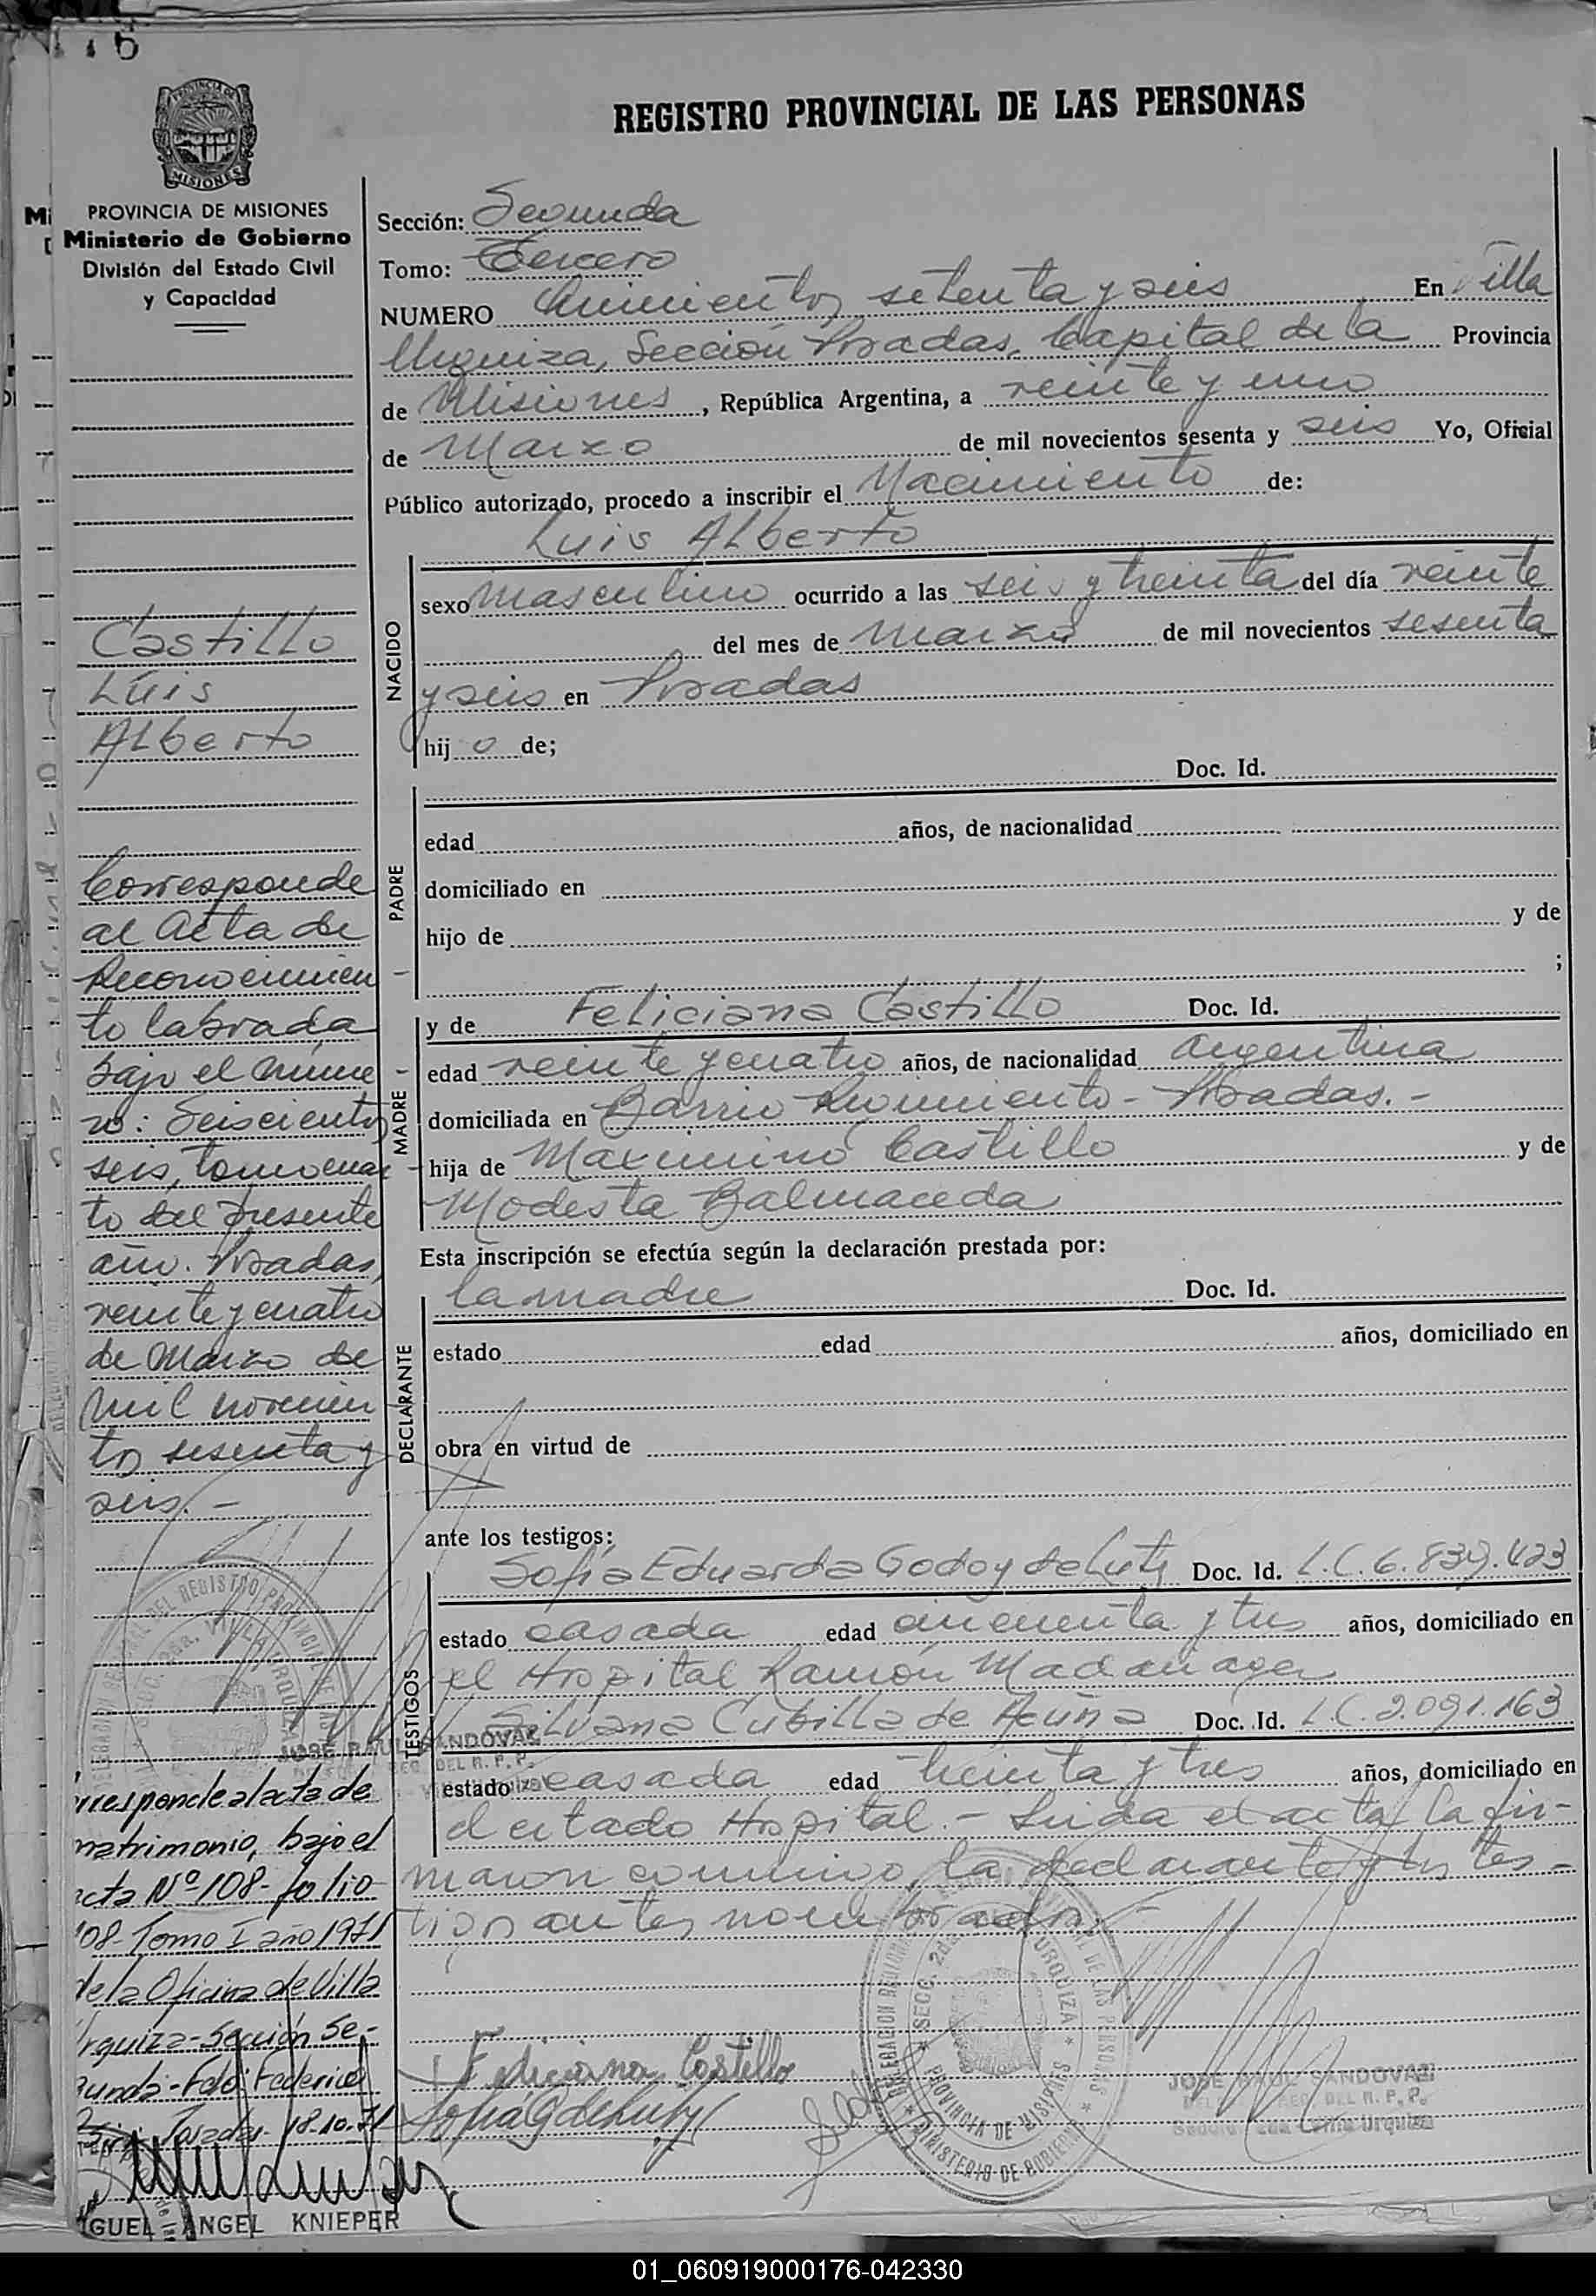 REGISTRO PROVINCIAL DE LAS PERSONAS
MISIONES
PROVINCIA DE MISIONES
Ministerio de Gobierno
División del Estado Civil
y Capacidad
Castillo
Luis
Alberto
Corresponde
al acta de
Reconocimien
to labrada
bajo el núme
ro: Seiscientos
seis, tomo cuar
to del presente
año. Posadas,
veinte y cuatro
de Marzo de
mil novecien
tos sesenta y
seis.-
rresponde al acta de
matrimonio, bajo el
acta Nº 108- folio
108- Tomo I año 1971
de la Oficina de Villa
Urquiza-Sección Se-
gunda-Fdo: Federico
Posadas 18.10.71
GUEL ANGEL KNIEPER
Sección: Segunda
Tomo: Tercero
NUMERO Quinientos setenta y seis En Villa
Urquiza, Sección Posadas, Capital de la Provincia
de Misiones, República Argentina, a veinte y uno
de Marzo de mil novecientos sesenta y seis Yo, Oficial
Público autorizado, procedo a inscribir el Nacimiento de:
Luis Alberto
NACIDO
sexo masculino ocurrido a las seis y treinta del día veinte
del mes de marzo de mil novecientos sesenta
y seis en Posadas
hij o de;
Doc. Id.
PADRE
edad años, de nacionalidad
domiciliado en
hijo de y de
;
MADRE
y de Feliciana Castillo Doc. Id.
edad veinte y cuatro años, de nacionalidad argentina
domiciliada en Barrio - Posadas.-
hija de Maximino Castillo y de
Modesta Balmaceda
Esta inscripción se efectúa según la declaración prestada por:
la madre Doc. Id.
DECLARANTE
estado edad años, domiciliado en
obra en virtud de
ante los testigos:
TESTIGOS
Sofia Eduarda Godoy de Doc. Id. L.C. 6.839.423
estado casada edad cincuenta y tres años, domiciliado en
el Hospital Ramón Madariaga
Silvana Cubilla de Acuña Doc. Id. L.C. 2.091.163
estado casada edad treinta y tres años, domiciliado en
el citado Hospital.- Leida el acta, la fir-
maron conmigo, la declarante y los tes-
tigos antes nombrados.-
Feliciana Castillo
JOSE RAUL SANDOVAL
DEL R. P. P.
JOSE RAUL SANDOVAL
DEL R. P. P.
Villa Urquiza
SECC. 2da. VILLA URQUIZA
PROVINCIA DE MISIONES
MINISTERIO DE GOBIERNO
01_060919000176-042330